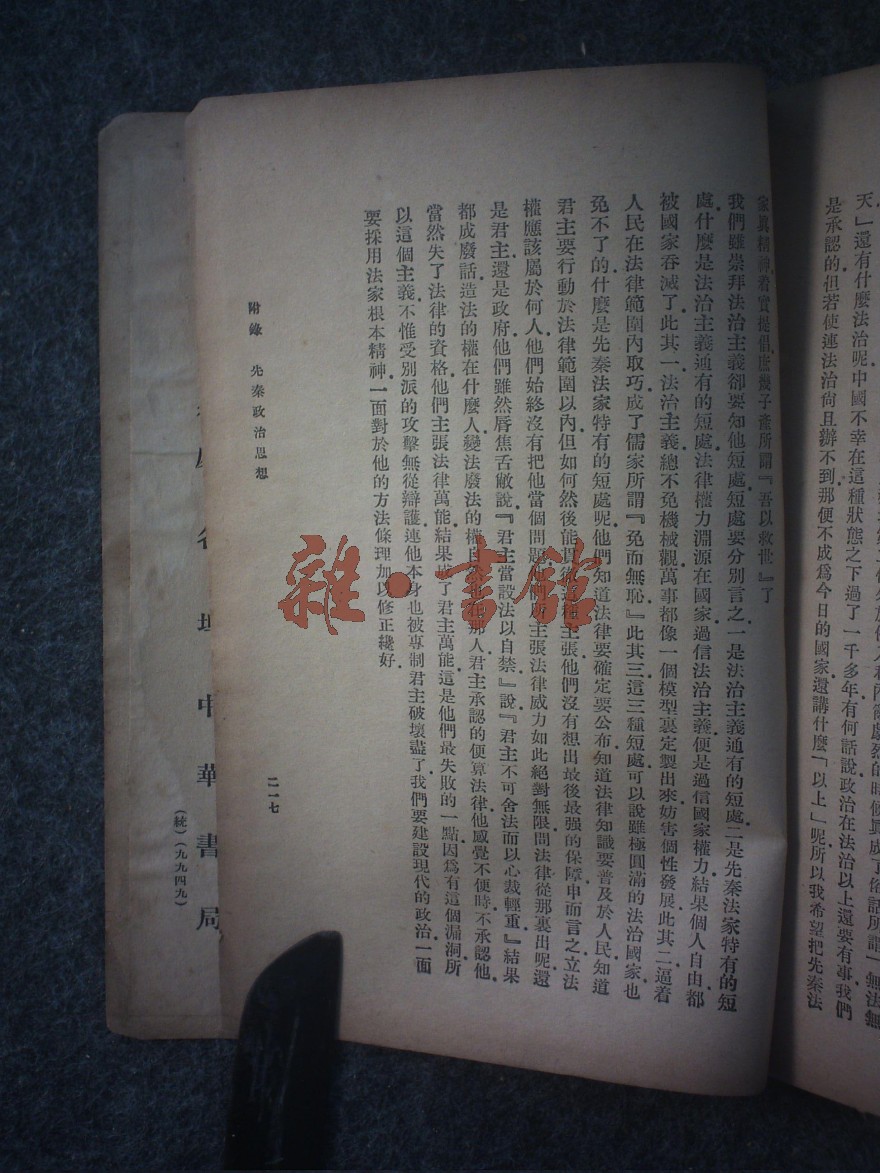 天」還有什麼法治呢中國不幸在這種狀態之下過了一千多年有何話說政治在法治以上還要有事我們
是承認的但若使連法治尙且辦不到那便不成爲今日的國家還講什麼「以上」呢所以我希望把先秦法
家眞精神着實提倡庶幾子產所謂『吾以救世』了
我們雖崇拜法治主義卻要知他短處短處要分別言之一是法治主義通有的短處二是先秦法家特有的短
處什麼是法治主義通有的短處法律權力淵源在國家過信法治主義便是過信國家權力結果個人自由都
被國家吞滅了此其一法治主義總不免機械觀萬事都像一個模型裏定製出來妨害個性發展此其二逼着
人民在法律範圍內取巧成了儒家所謂『免而無恥』此其三這三種短處可以說雖極圓滿的法治國家也
免不了的什麼是先秦法家特有的短處呢他們知道法律要確定要公布知道法律知識要普及於人民知道
君主要行動於法律範圍以內但如何然後能貫徹這種主張他們沒有想出最後最强的保障申而言之立法
權應該屬於何人他們始終沒有把他當個問題他們所主張法律威力如此絕對無限問法律從那裏出呢還
是君主還是政府他們雖然唇焦舌敝說『君主當設法以自禁』說『君主不可舍法而以心裁輕重』結果
都成廢話造法的權在什麼人變法廢法的權自然也在那人君主承認的便算法律他感覺不便時不承認他
當然失了法律的資格他們主張法律萬能結果成了君主萬能這是他們最失敗的一點因爲有這個漏洞所
以這個主義不惟受別派的攻擊無從辯護連他本身也被專制君主破壞盡了我們要建設現代的政治一面
要採用法家根本精神一面對於他的方法條理加以修正纔好
附錄 先秦政治思想
二一七
中華書局
(統)(九九四九)
雜·書館